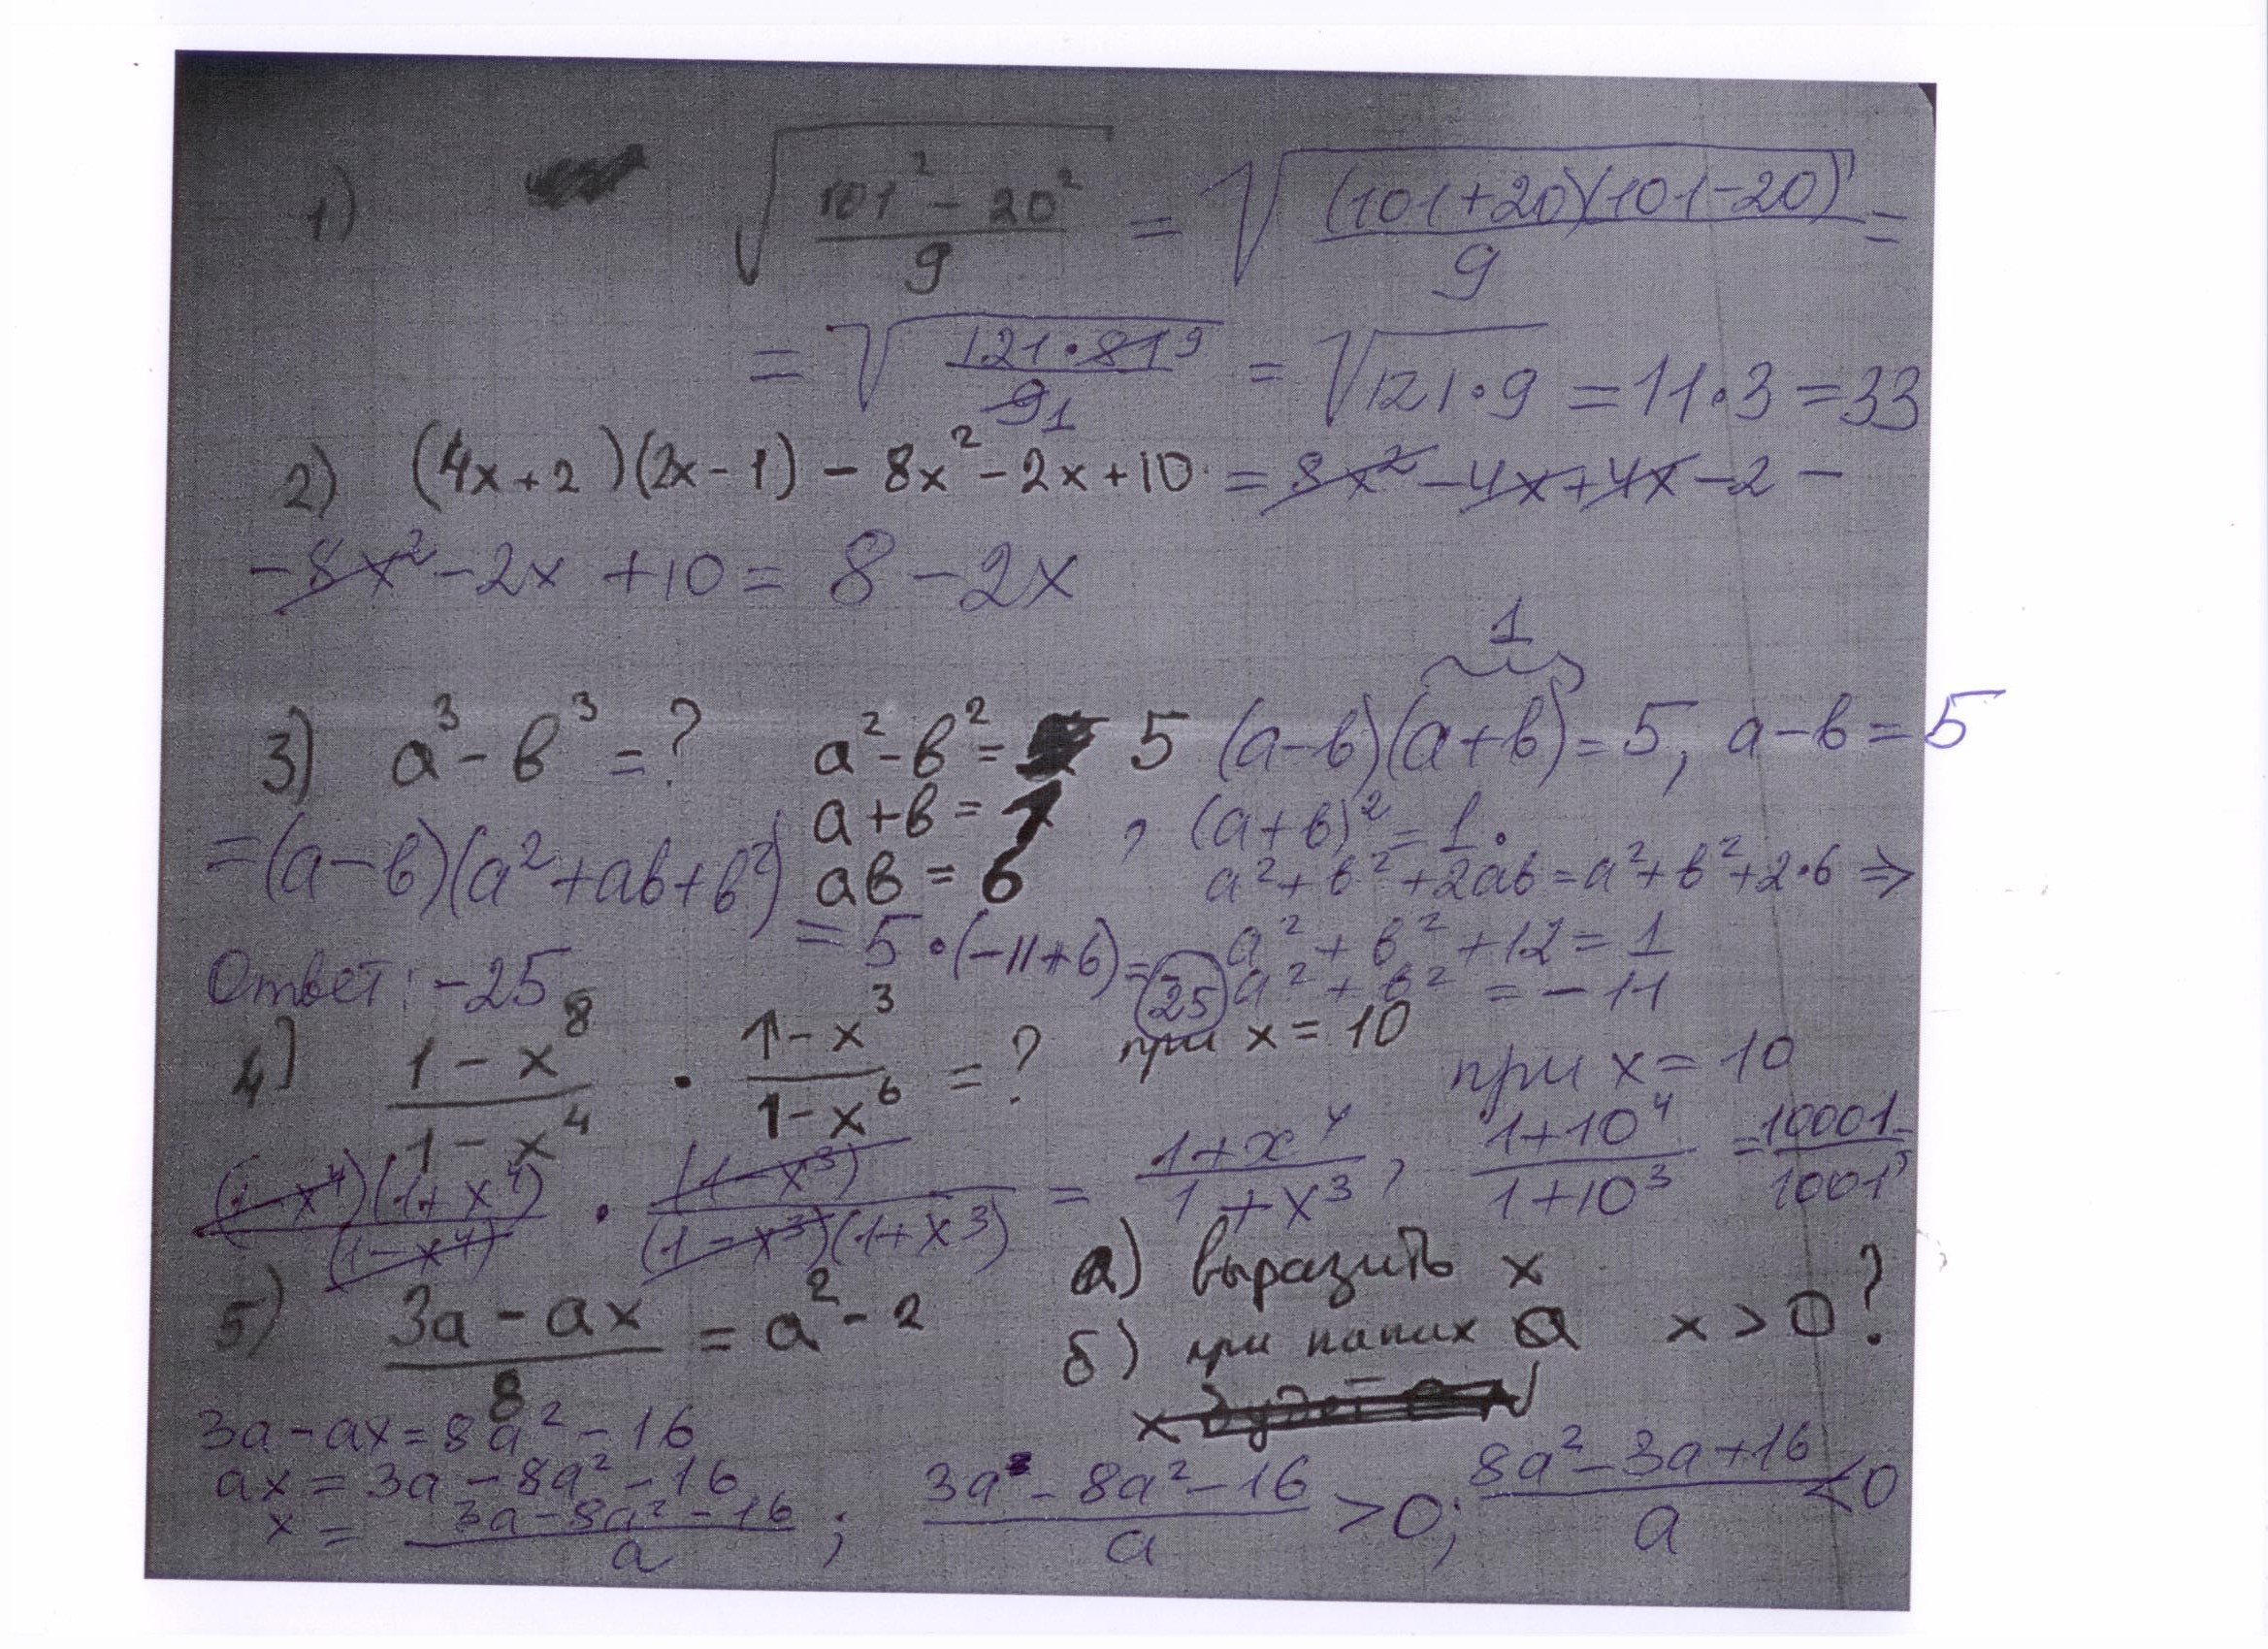 1) √((101² - 20²)/9) = √(((101+20)(101-20))/9) =
= √((121·81 9)/(9 1)) = √(121·9) = 11·3 = 33
2) (4x+2)(2x-1) - 8x² - 2x + 10 = 8x² - 4x + 4x - 2 -
- 8x² - 2x + 10 = 8 - 2x
1
3) a³ - в³ = ? a² - в² = 5 (a-в)(a+в) = 5, a-в = 5
a+в = 1 , (a+в)² = 1.
= (a-в)(a²+aв+в²) aв = 6 a²+в²+2aв = a²+в²+2·6 ⇒
= 5·(-11+6) = -25 a² + в² + 12 = 1
Ответ: -25 a² + в² = -11
4) (1-x⁸)/(1-x⁴) · (1-x³)/(1-x⁶) = ? при x = 10
при x = 10
((1-x⁴)(1+x⁴))/(1-x⁴) · (1-x³)/((1-x³)(1+x³)) = (1+x⁴)/(1+x³), (1+10⁴)/(1+10³) = 10001/1001
5) (3a-ax)/8 = a² - 2 а) выразить x
б) при каких a x > 0 ?
x будет
3a - ax = 8a² - 16
ax = 3a - 8a² - 16
x = (3a-8a²-16)/a ; (3a - 8a² - 16)/a > 0; (8a² - 3a + 16)/a < 0